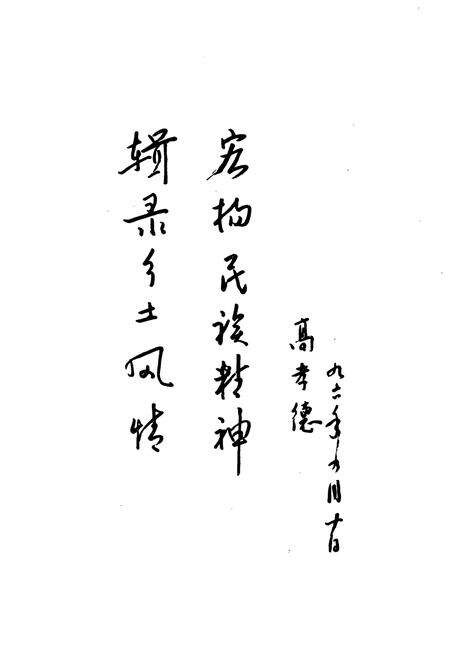 辑录乡土风情
宏扬民族精神
高孝德
九六年月十日